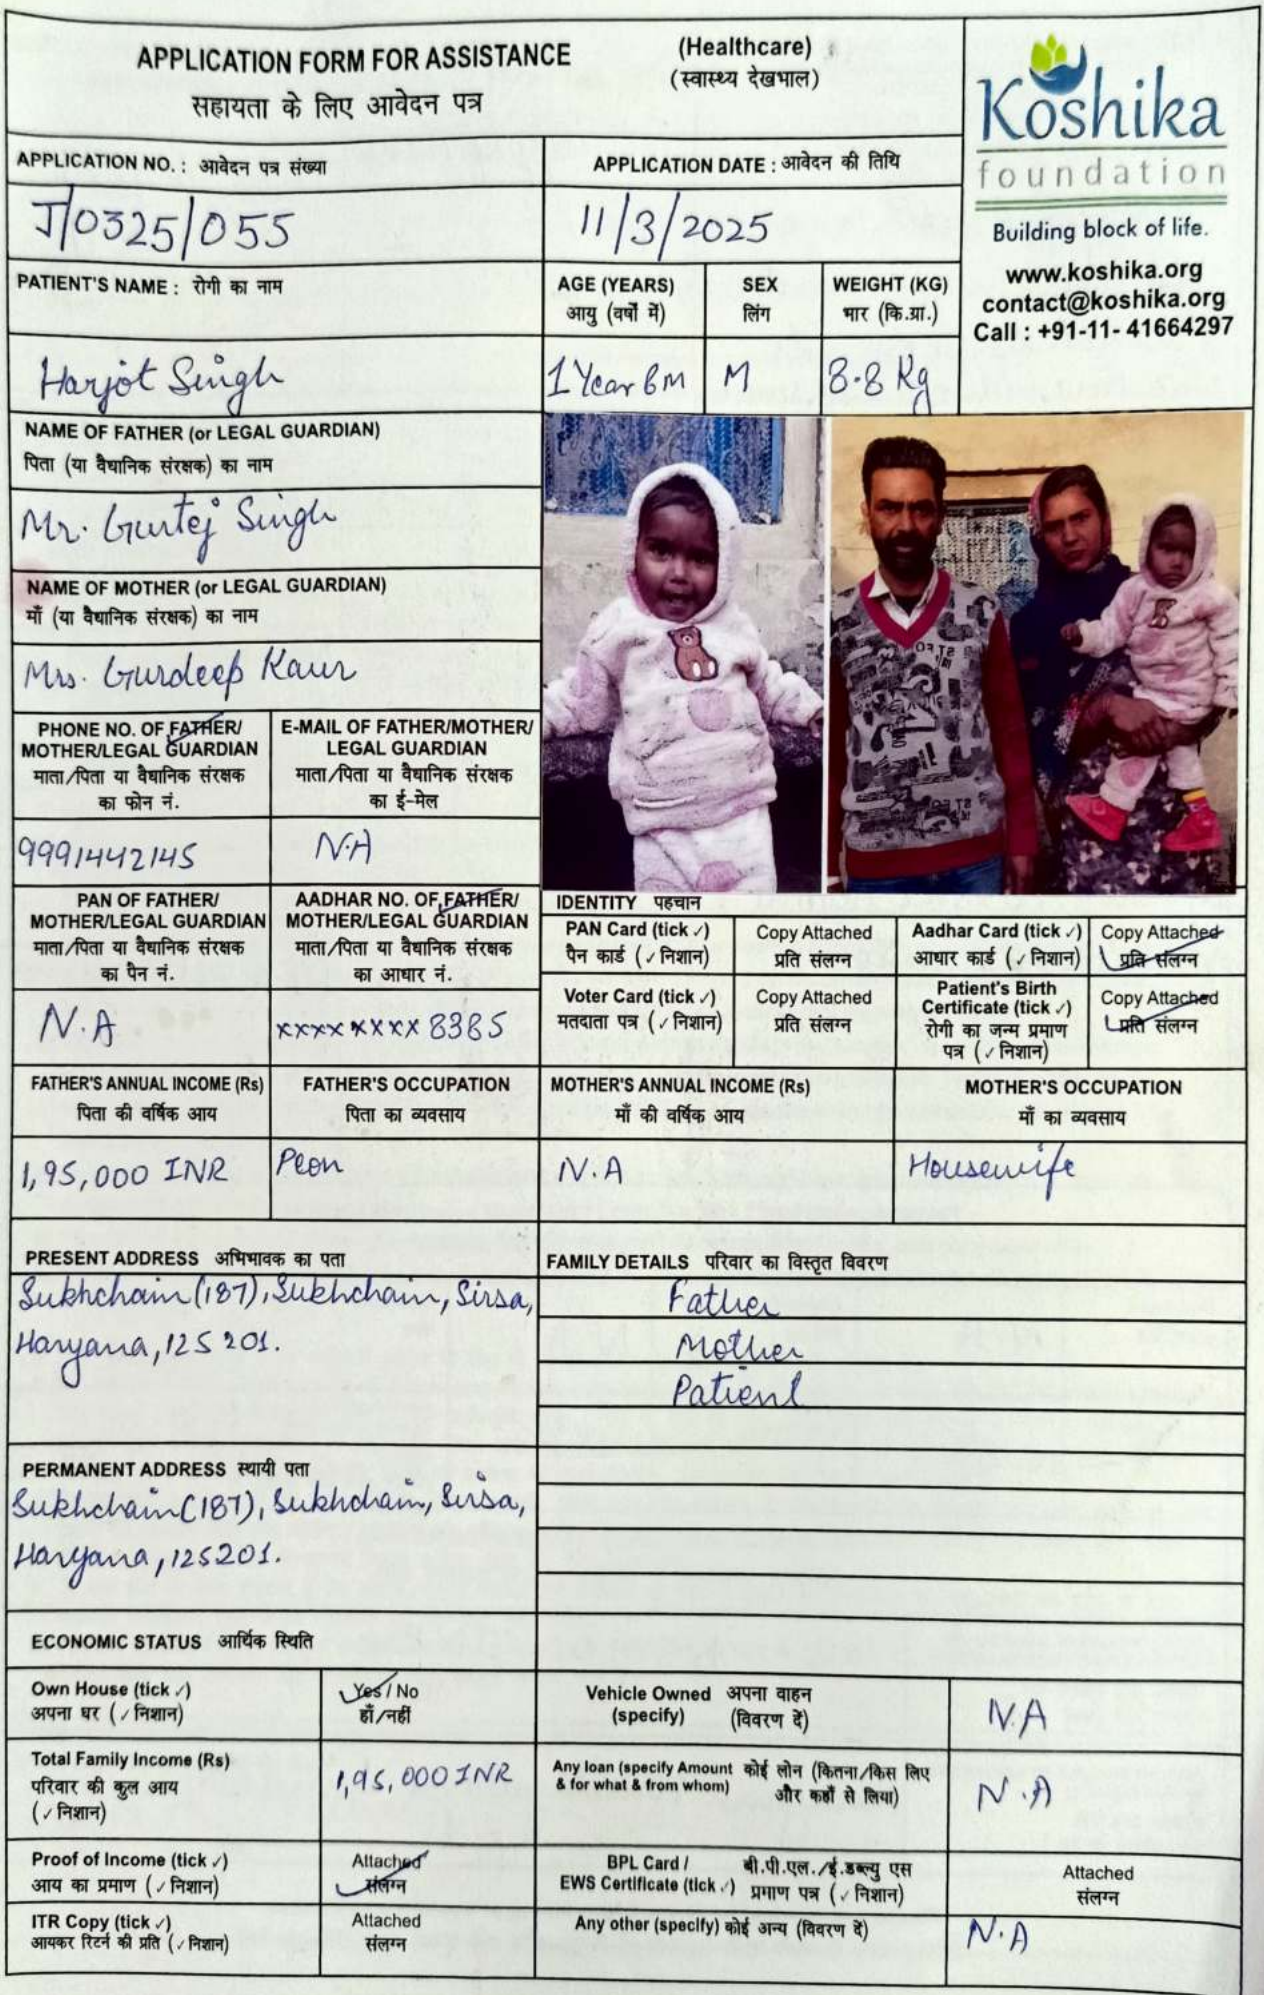 APPLICATION FORM FOR ASSISTANCE (Healthcare)
सहायता के लिए आवेदन पत्र (स्वास्थ्य देखभाल)
Koshika
foundation
Building block of life.
www.koshika.org
contact@koshika.org
Call : +91-11- 41664297
APPLICATION NO. : आवेदन पत्र संख्या
J/0325/055
APPLICATION DATE : आवेदन की तिथि
11/3/2025
PATIENT'S NAME : रोगी का नाम
Harjot Singh
AGE (YEARS)
आयु (वर्षों में)
1 Year 8M
SEX
लिंग
M
WEIGHT (KG)
भार (कि.ग्रा.)
8.8 Kg
NAME OF FATHER (or LEGAL GUARDIAN)
पिता (या वैधानिक संरक्षक) का नाम
Mr. Gurtej Singh
NAME OF MOTHER (or LEGAL GUARDIAN)
माँ (या वैधानिक संरक्षक) का नाम
Mrs. Gurdeep Kaur
PHONE NO. OF FATHER/
MOTHER/LEGAL GUARDIAN
माता/पिता या वैधानिक संरक्षक
का फोन नं.
9991442145
E-MAIL OF FATHER/MOTHER/
LEGAL GUARDIAN
माता/पिता या वैधानिक संरक्षक
का ई-मेल
N.A
PAN OF FATHER/
MOTHER/LEGAL GUARDIAN
माता/पिता या वैधानिक संरक्षक
का पैन नं.
N.A
AADHAR NO. OF FATHER/
MOTHER/LEGAL GUARDIAN
माता/पिता या वैधानिक संरक्षक
का आधार नं.
xxxx xxxx 8385
IDENTITY पहचान
PAN Card (tick ✓)
पैन कार्ड (✓ निशान)
Copy Attached
प्रति संलग्न
Aadhar Card (tick ✓)
आधार कार्ड (✓ निशान)
Copy Attached
प्रति संलग्न
Voter Card (tick ✓)
मतदाता पत्र (✓ निशान)
Copy Attached
प्रति संलग्न
Patient's Birth
Certificate (tick ✓)
रोगी का जन्म प्रमाण
पत्र (✓ निशान)
Copy Attached
प्रति संलग्न
FATHER'S ANNUAL INCOME (Rs)
पिता की वर्षिक आय
1,95,000 INR
FATHER'S OCCUPATION
पिता का व्यवसाय
Peon
MOTHER'S ANNUAL INCOME (Rs)
माँ की वर्षिक आय
N.A
MOTHER'S OCCUPATION
माँ का व्यवसाय
Housewife
PRESENT ADDRESS अभिभावक का पता
Sukhchain (187), Sukhchain, Sirsa,
Haryana, 125201.
FAMILY DETAILS परिवार का विस्तृत विवरण
Father
Mother
Patient
PERMANENT ADDRESS स्थायी पता
Sukhchain (187), Sukhchain, Sirsa,
Haryana, 125201.
ECONOMIC STATUS आर्थिक स्थिति
Own House (tick ✓)
अपना घर (✓ निशान)
Yes / No
हाँ/नहीं
Vehicle Owned अपना वाहन
(specify) (विवरण दें)
N.A
Total Family Income (Rs)
परिवार की कुल आय
(✓ निशान)
1,95,000 INR
Any loan (specify Amount कोई लोन (कितना/किस लिए
& for what & from whom) और कहाँ से लिया)
N.A
Proof of Income (tick ✓)
आय का प्रमाण (✓ निशान)
Attached
संलग्न
BPL Card / बी.पी.एल./ई.डब्ल्यु एस
EWS Certificate (tick ✓) प्रमाण पत्र (✓ निशान)
Attached
संलग्न
ITR Copy (tick ✓)
आयकर रिटर्न की प्रति (✓ निशान)
Attached
संलग्न
Any other (specify) कोई अन्य (विवरण दें)
N.A